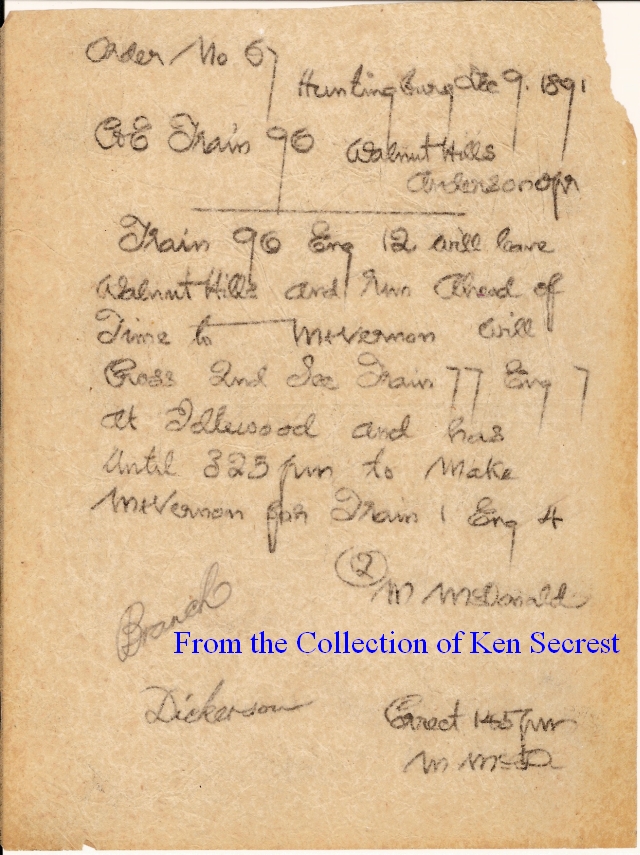 Order No 67
Huntingburg Dec 9. 1891
C&E Train 96 Walnut Hills
Anderson opr
Train 96 Eng 12 will leave
Walnut Hills and run Ahead of
Time to Mt Vernon will
Cross 2nd Sec Train 77 Eng 7
at Idlewood and has
Until 325 pm to Make
Mt Vernon for Train 1 Eng 4
(2)
M McDonald
Branch
From the Collection of Ken Secrest
Dickerson
Correct 145 pm
M McD